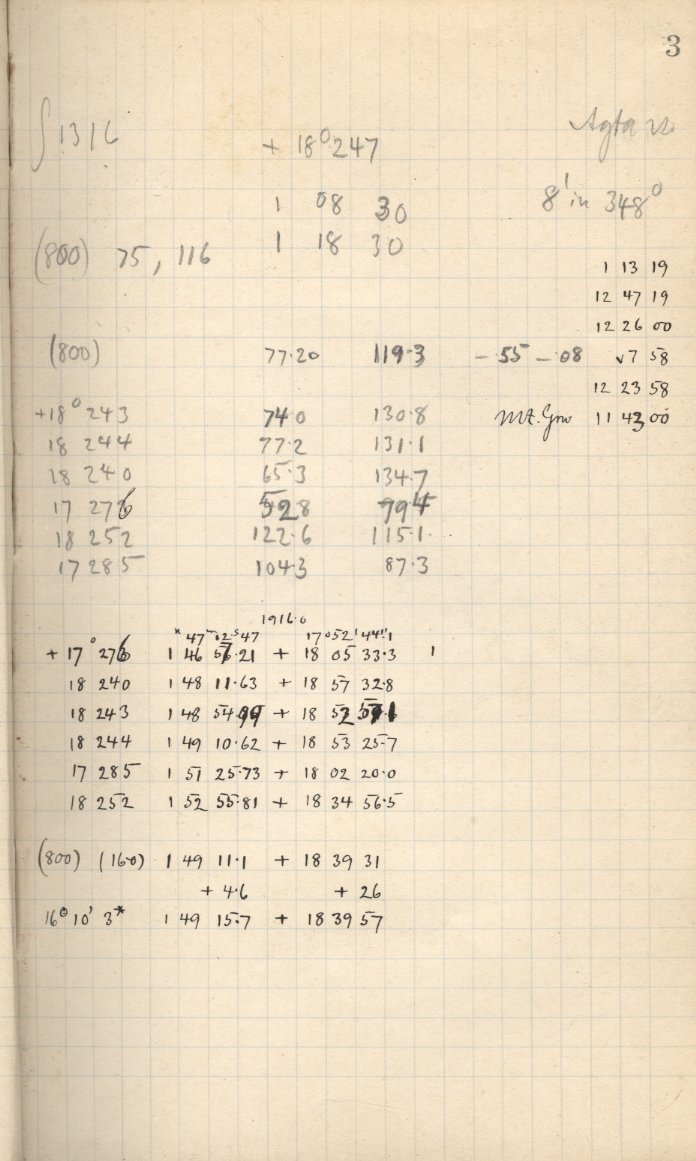 3
∫1316 + 18° 247
8' in 348°
1 08 30
(800) 75, 116 1 18 30
1 13 19
12 47 19
12 26 00
(800) 77.20 119.3 – 55 – 08 √7 58
12 23 58
+18° 243 74.0 130.8 Mt. 11 43 00
18 244 77.2 131.1
18 240 65.3 134.7
17 276 52.8 79.4
18 252 122.6 115.1
17 285 104.3 87.3
1916.0
h 47 m 02 s 47 17 ° 52 ' 44 " 1
+ 17° 276 1 46 57.21 + 18 05 33.3 1
18 240 1 48 11.63 + 18 57 32.8
18 243 1 48 54.99 + 18 52
18 244 1 49 10.62 + 18 53 25.7
17 285 1 51 25.73 + 18 02 20.0
18 252 1 52 55.81 + 18 34 56.5
(800) (160) 1 49 11.1 + 18 39 31
+ 4.6 + 26
16° 10' 3* 1 49 15.7 + 18 39 57